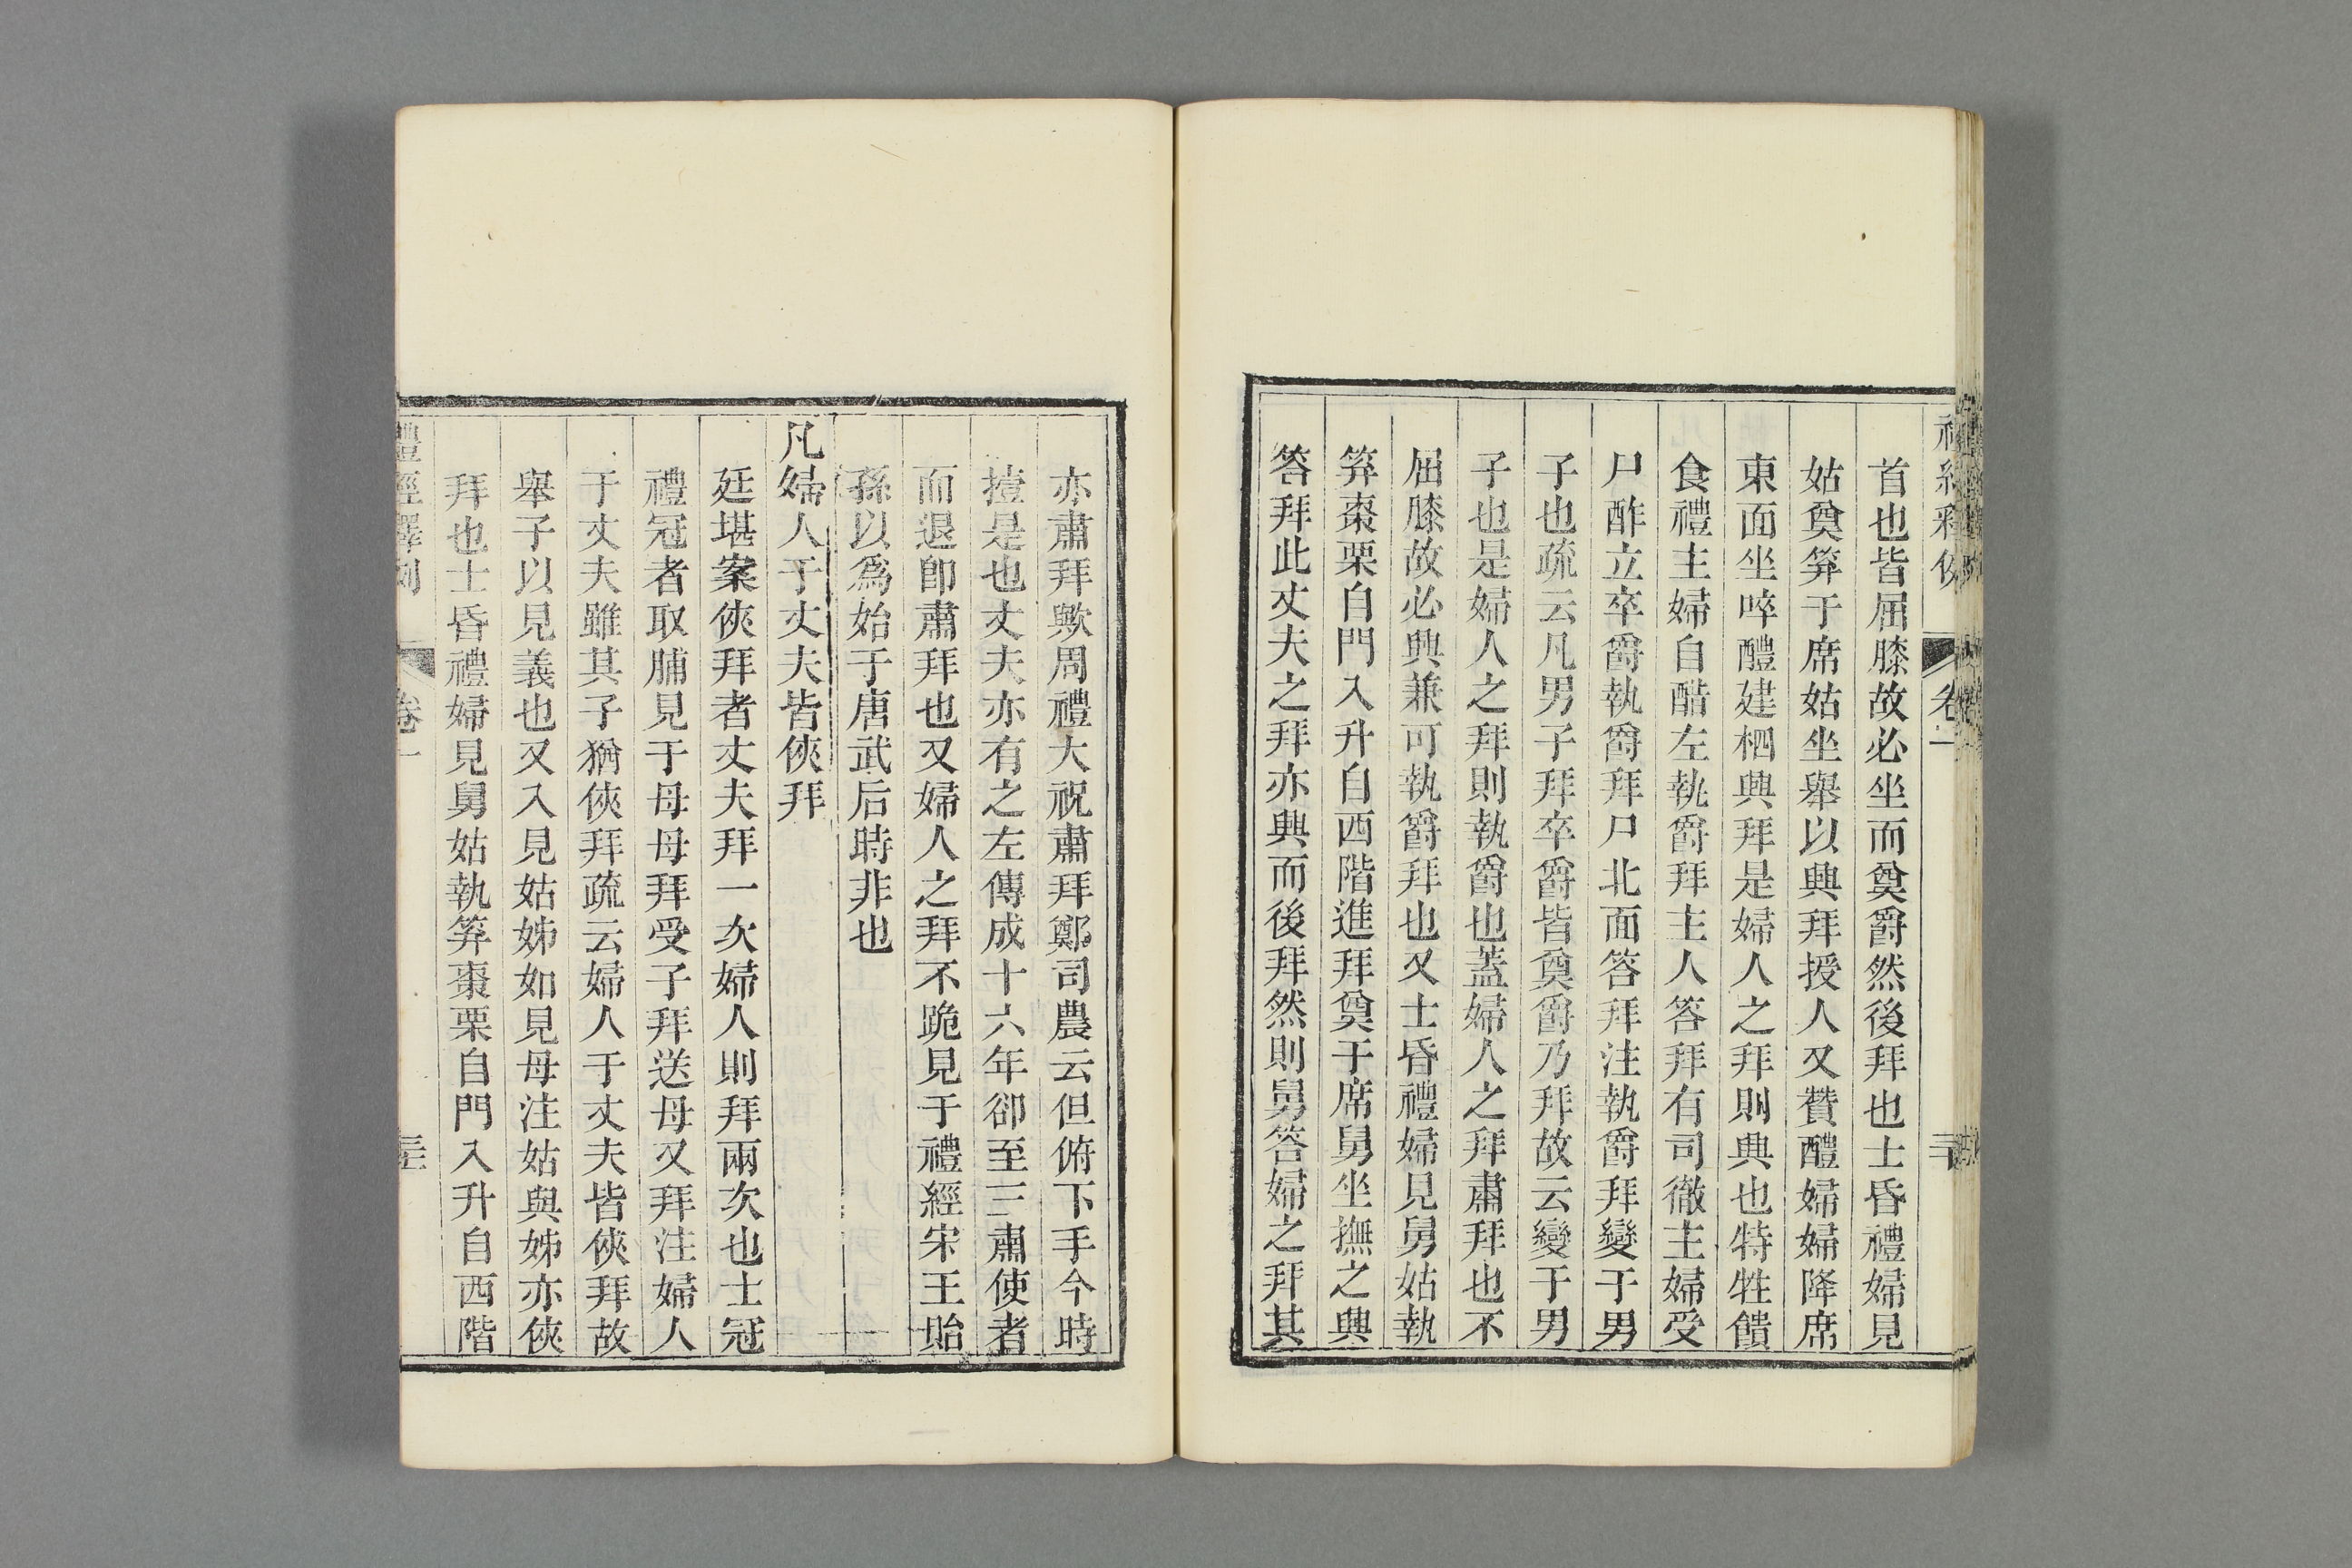 首也皆屈膝故必坐而奠爵然後拜也士昏禮婦見
姑奠笲于席姑坐舉以興拜授人又贊醴婦婦降席
東面坐啐醴建柶興拜是婦人之拜則興也特牲饋
食禮主婦自酳左執爵拜主人答拜有司徹主婦受
尸酢立卒爵執爵拜尸北面答拜注執爵拜變于男
子也疏云凡男子拜卒爵皆奠爵乃拜故云變于男
子也是婦人之拜則執爵也蓋婦人之拜肅拜也不
屈膝故必興兼可執爵拜也又士昏禮婦見舅姑執
笲棗栗自門入升自西階進拜奠于席舅坐撫之興
答拜此丈夫之拜亦興而後拜然則舅答婦之拜其
亦肅拜歟周禮大祝肅拜鄭司農云但俯下手今時
撎是也丈夫亦有之左傳成十六年郤至三肅使者
而退卽肅拜也又婦人之拜不跪見于禮經宋王貽
孫以爲始于唐武后時非也
凡婦人于丈夫皆俠拜
廷堪案俠拜者丈夫拜一次婦人則拜兩次也士冠
禮冠者取脯見于母母拜受子拜送母又拜注婦人
于丈夫雖其子猶俠拜疏云婦人于丈夫皆俠拜故
舉子以見義也又入見姑姊如見母注姑與姊亦俠
拜也士昏禮婦見舅姑執笲棗栗自門入升自西階
禮經釋例 卷一